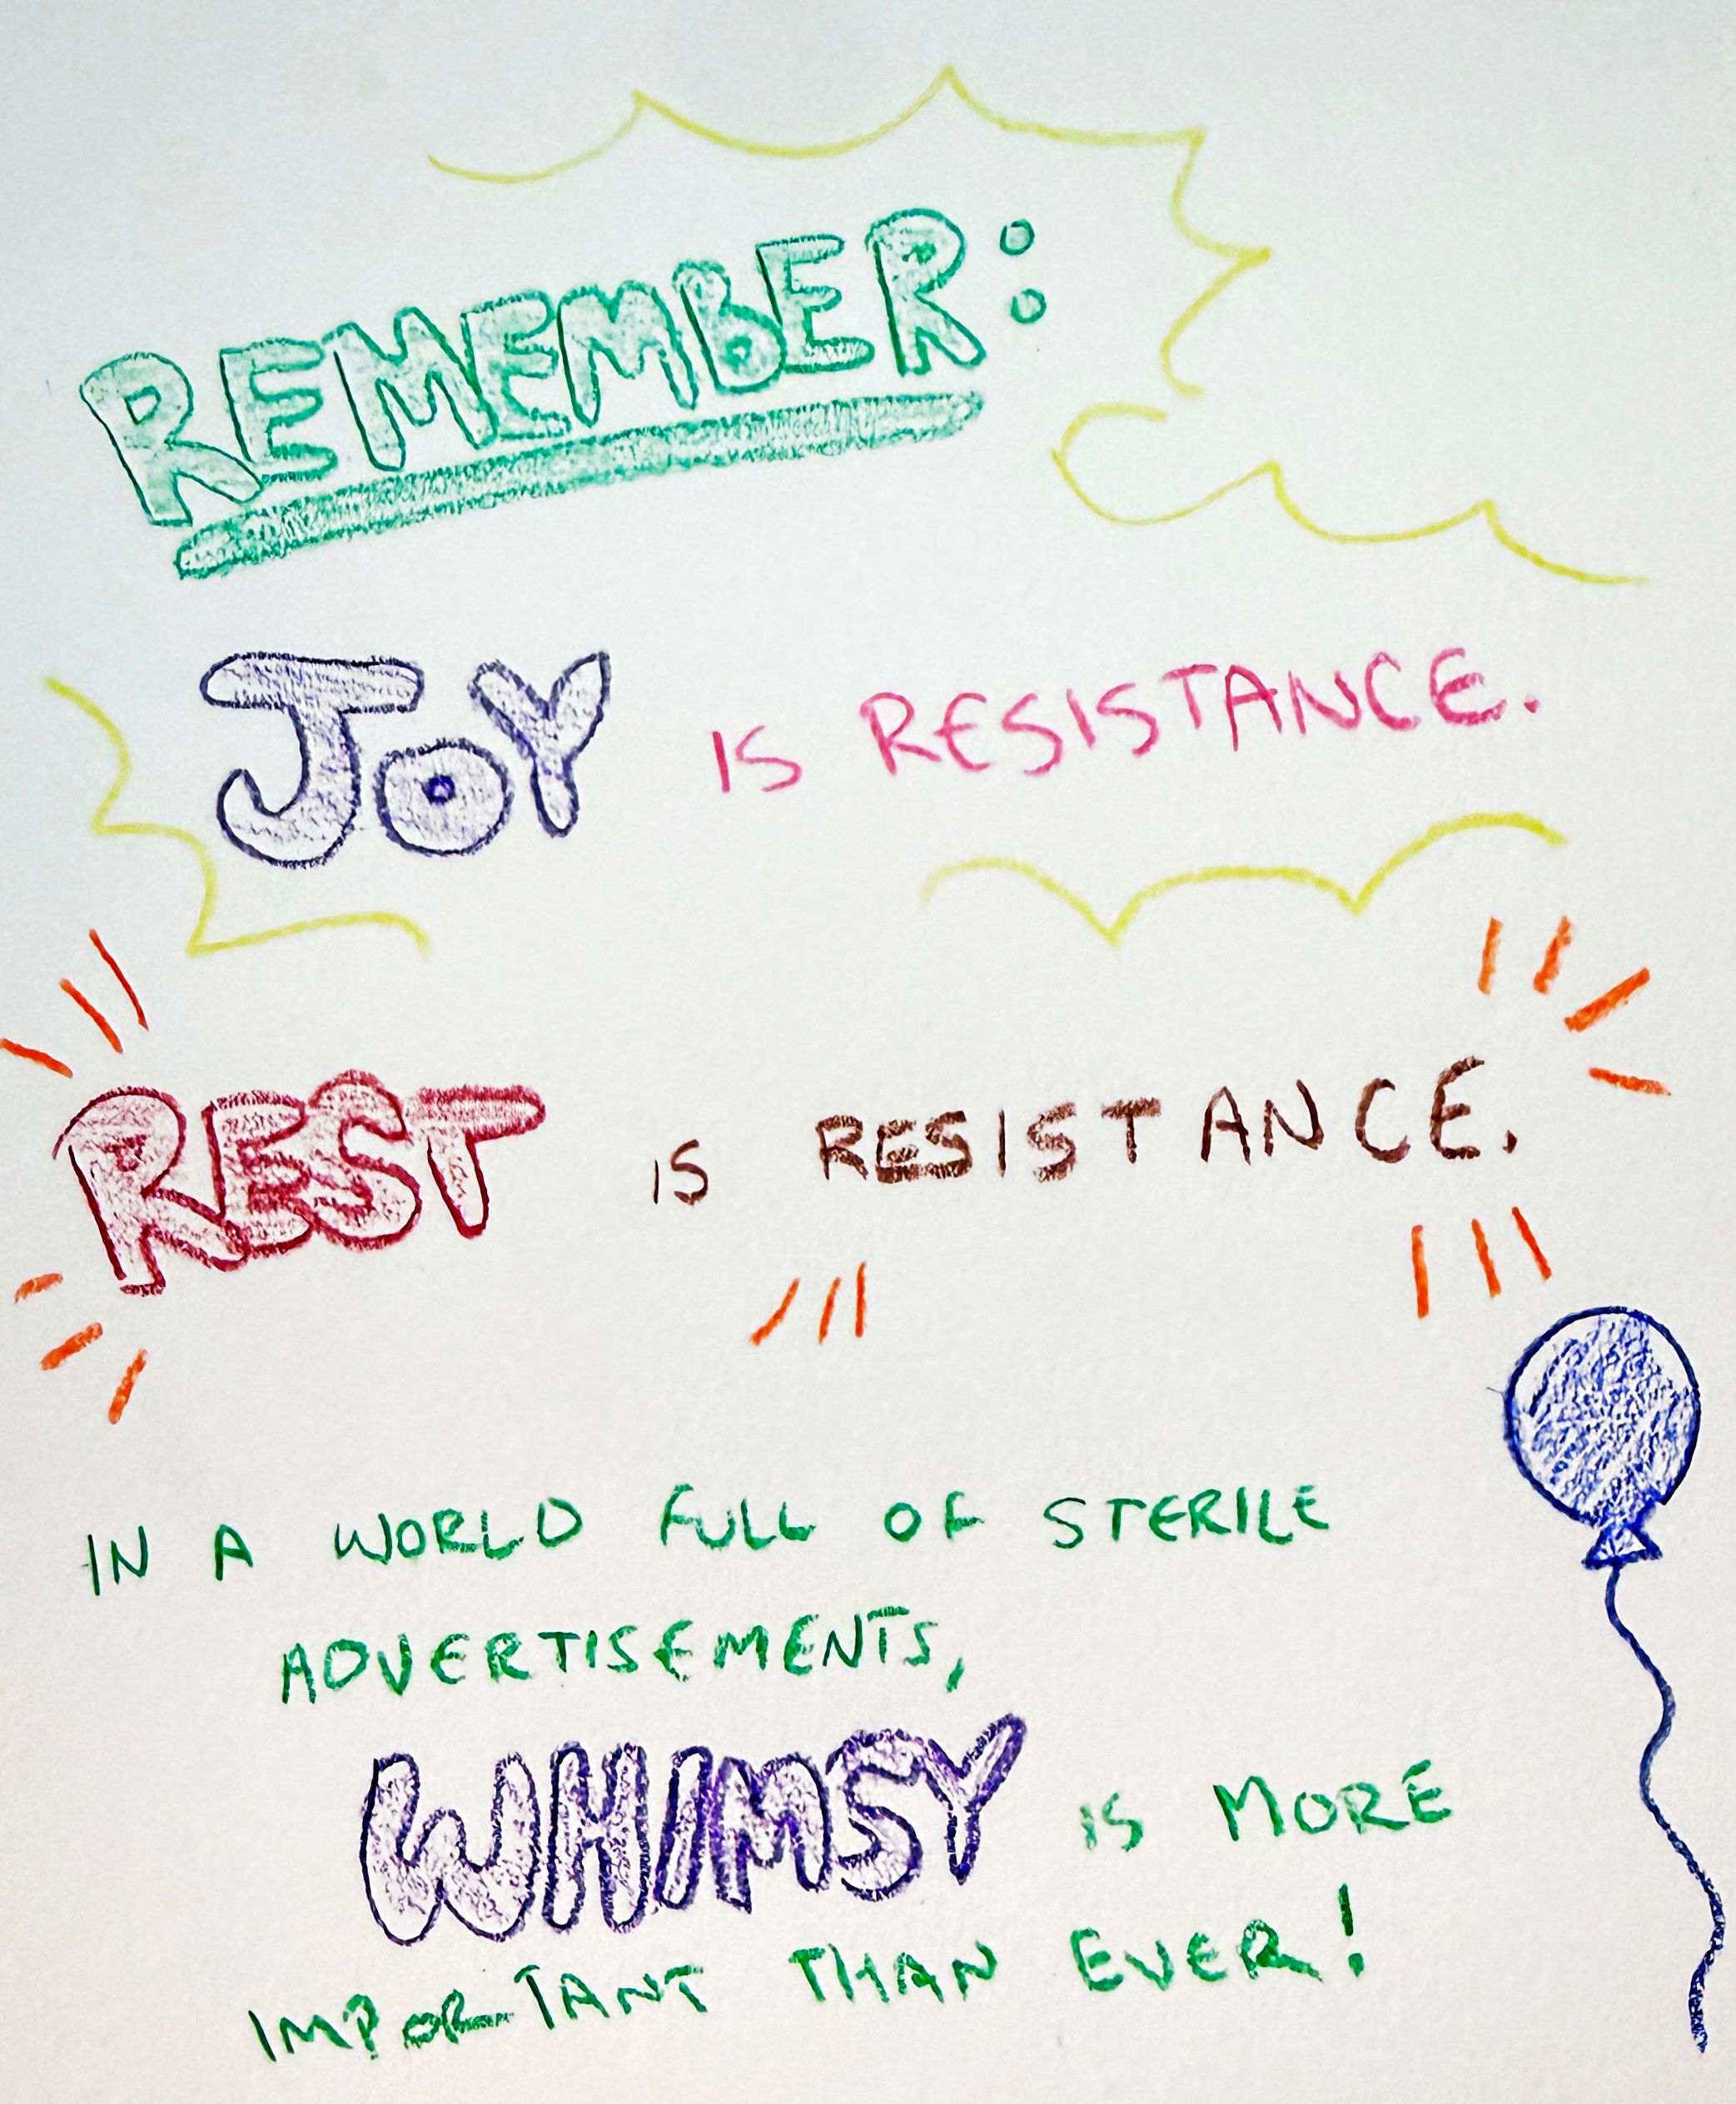 REMEMBER:
JOY IS RESISTANCE.
REST IS RESISTANCE.
IN A WORLD FULL OF STERILE
ADVERTISEMENTS,
WHIMSY IS MORE
IMPORTANT THAN EVER!